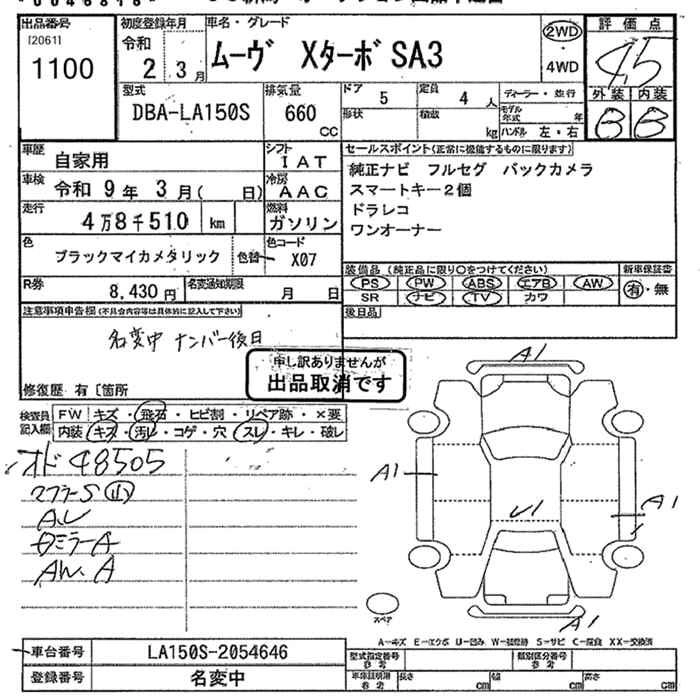 出品番号
[2061]
1100
初度登録年月
令和
2 3月
車名・グレード
ムーヴ Xターボ SA3
2WD
・
4WD
評価点
4.5
外装 内装
B B
型式
DBA-LA150S
排気量
660
CC
ドア
5
定員
4 人
形状
積載
kg
ディーラー・並行
モデル年式 年
ハンドル 左・右
車歴
自家用
シフト
IAT
車検
令和 9年 3月( 日)
冷房
AAC
走行
4万8千510 km
燃料
ガソリン
色
ブラックマイカメタリック
色替
色コード
X07
R券
8,430 円
名変通知期限
月 日
セールスポイント(正常に機能するものに限ります)
純正ナビ フルセグ バックカメラ
スマートキー2個
ドラレコ
ワンオーナー
装備品(純正品に限り○をつけてください)
PS PW ABS エアB AW
SR ナビ TV カワ
新車保証書
有・無
後日品
注意事項申告欄(不具合内容等は具体的に記入して下さい)
名変中 ナンバー後日
修復歴 有〔箇所
申し訳ありませんが
出品取消です
検査員
記入欄
FW キズ・飛石・ヒビ割・リペア跡・×要
内装 キズ・汚レ・コゲ・穴・スレ・キレ・破レ
オド 48505
AW. A
A1
A1
A1
U1
A1
スペア
A-キズ E-エクボ U-凹み W-補修跡 S-サビ C-腐食 XX-交換済
車台番号
LA150S-2054646
登録番号
名変中
型式指定番号
参考
類別区分番号
参考
車体証明用
参考
長さ cm
幅 cm
高さ cm